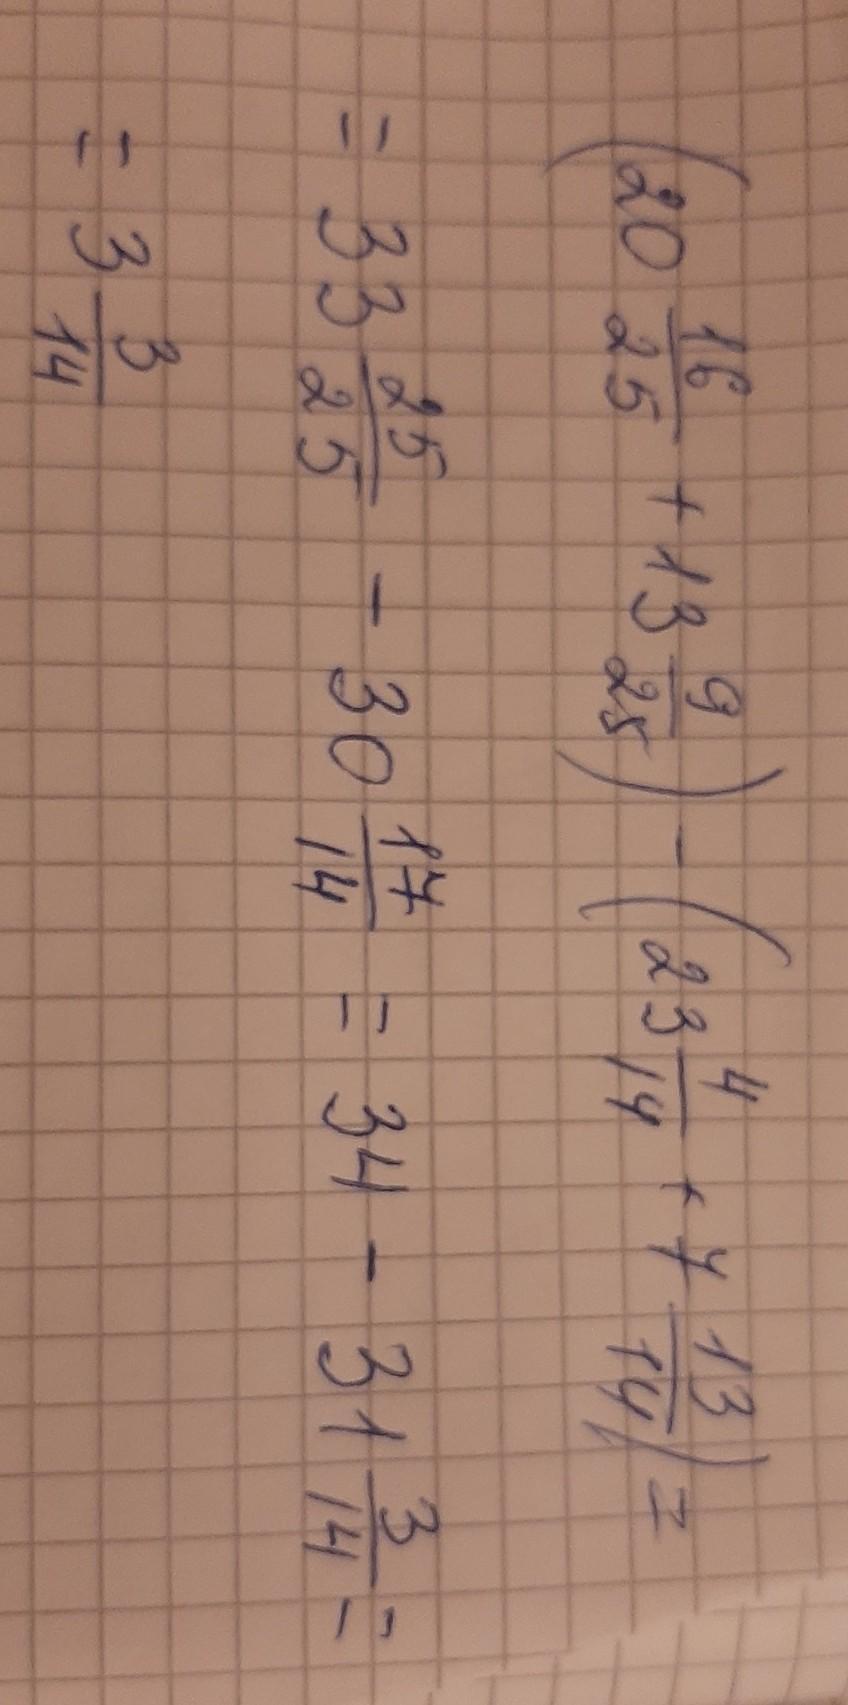 (20 16/25 + 13 9/25) - (23 4/14 + 7 13/14) =
= 33 25/25 - 30 17/14 = 34 - 31 3/14 =
= 3 3/14